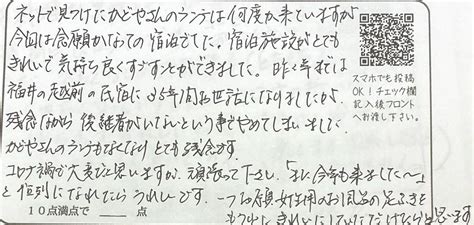 ネットで見つけたかどやさんのランチは何度か来ていますが
今回は念願かなっての宿泊でした。宿泊施設がとても
きれいで気持ち良くすごすことができました。昨年までは
福井の越前の民宿に35年間お世話になりましたが、
残念ながら後継者がいないという事でやめてしまいました。
かどやさんのランチもなくなりとても残念です。
コロナ禍で大変だと思いますが、頑張って下さい。「また今年も来ました〜」
と恒例になれたらうれしいです。 一つお願い女性用のお風呂の足ふきを
もう少しきれいにしていただけたらと思います
10点満点で 点
スマホでも投稿
OK!チェック欄
記入後フロント
へお渡し下さい。